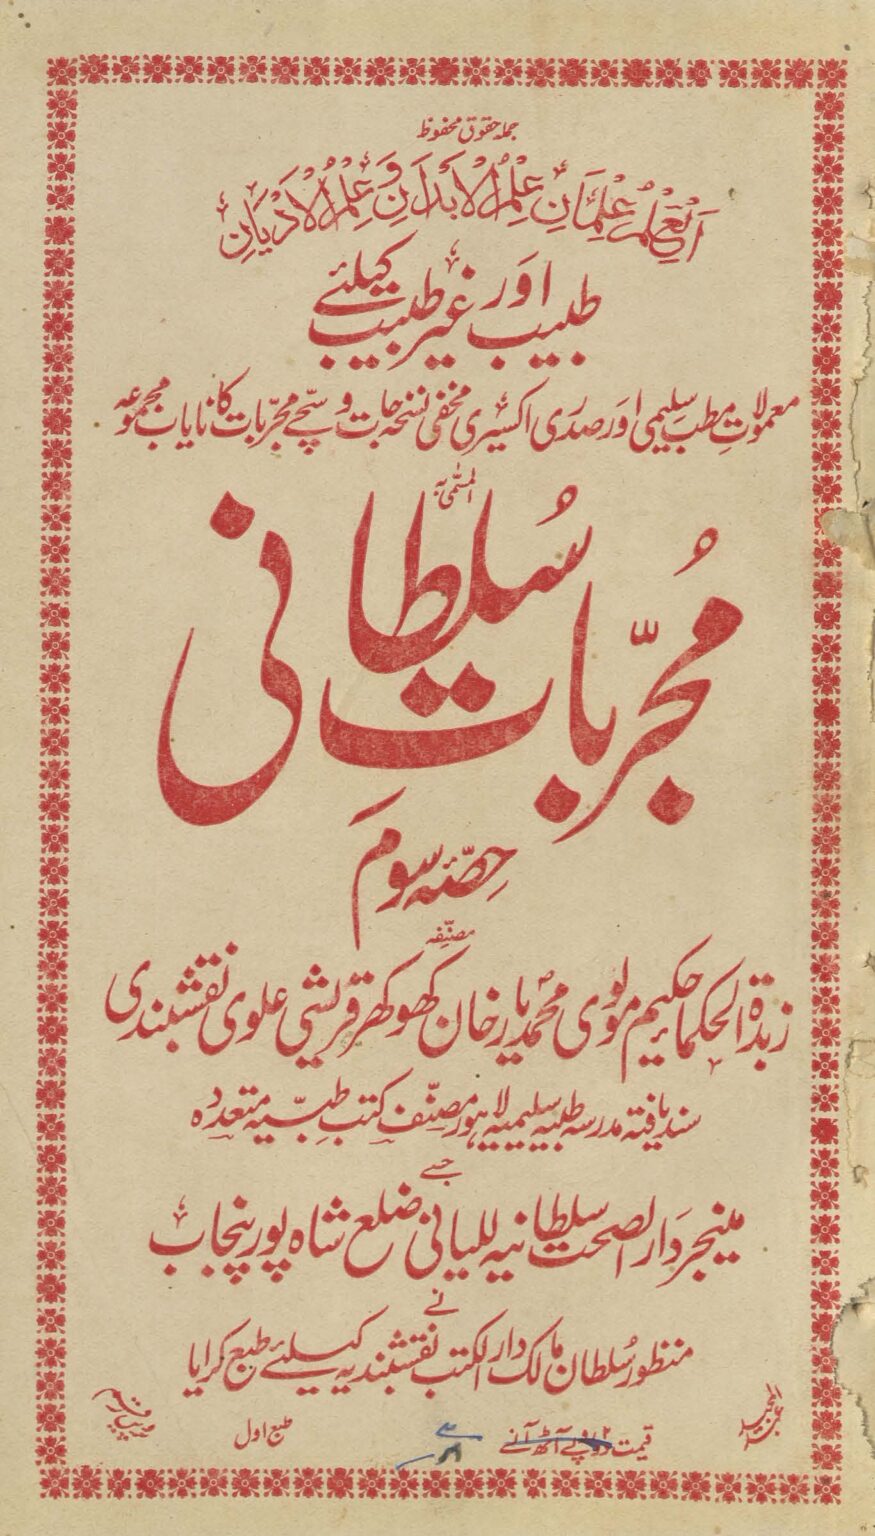 جملہ حقوق محفوظ
اَلعِلمُ عِلمَانِ عِلمُ الاَبدَانِ وَ عِلمُ الاَدیَانِ
طبیب اور غیر طبیب کیلئے
معمولاتِ مطب سلیمی اور صدری اکسیری مخفی نسخہ جات و سچے مجربات کا نایاب مجموعہ
المسمّٰی بہ
مُجرّباتِ سُلطانی
حِصّہ سوم
مصنّفہ
زبدۃ الحکما حکیم مولوی محمد یار خان کھوکھر قریشی علوی نقشبندی
سند یافتہ مدرسہ طبیہ سلیمیہ لاہور مصنّف کتب طبّیہ متعددہ
جسے
مینجر دار الصحت سلطانیہ للیانی ضلع شاہ پور پنجاب
نے
منظور سُلطان مالک دار الکتب نقشبندیہ کیلئے طبع کرایا
قیمت دو روپے آٹھ آنے
طبع اول